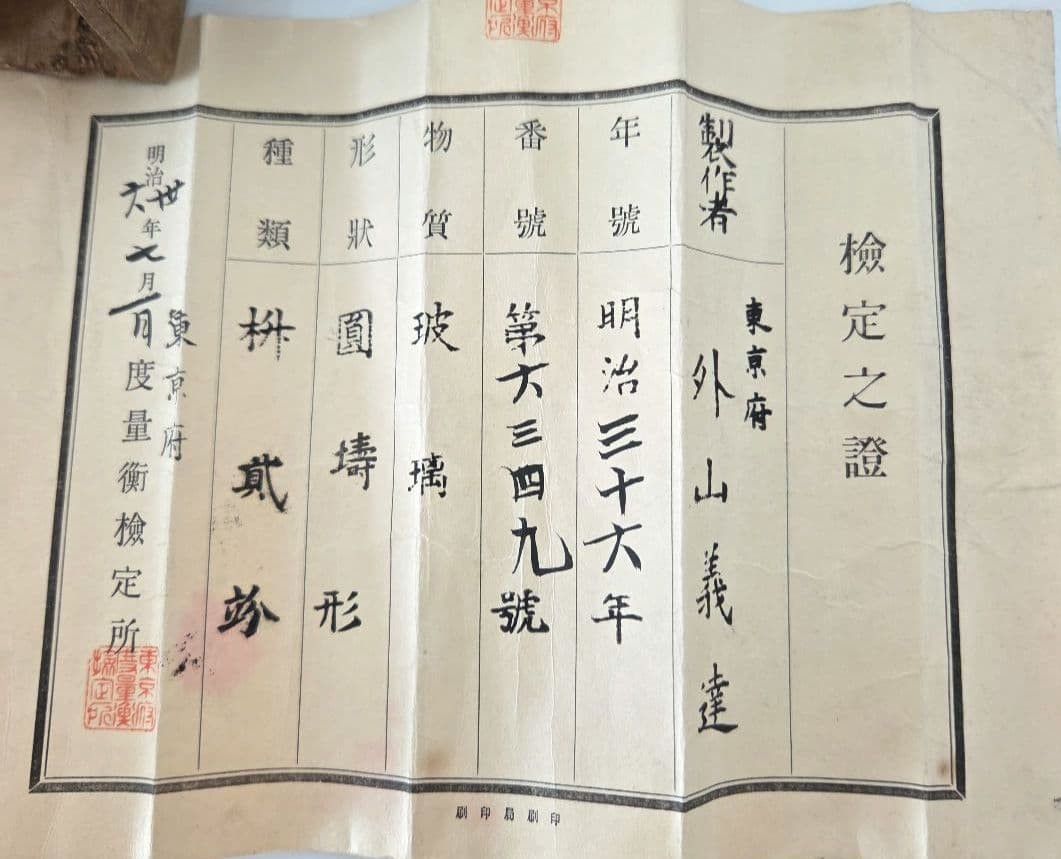 檢定之證
製作者 東京府
外山義達
年號 明治三十六年
番號 第六三四九號
物質 玻璃
形狀 圓壔形
種類 枡貳竕
明治卅六年七月一日
東京府
度量衡檢定所
東京府度量衡檢定所
印刷局印刷